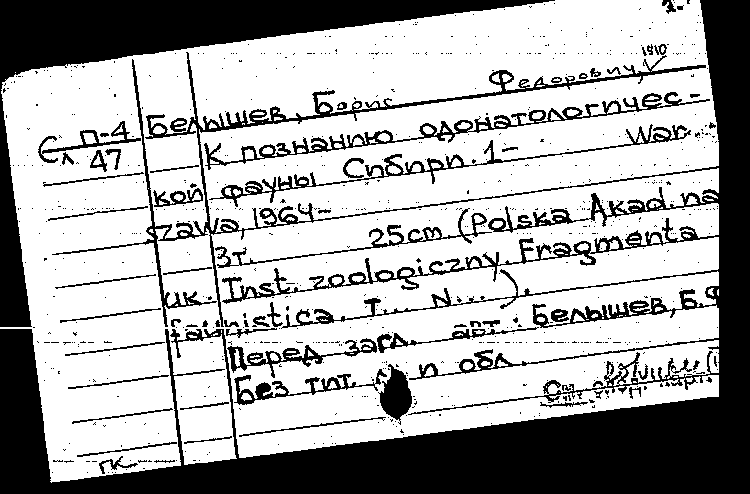 1910
Белышев, Борис Федорович,
Єл п-4/47
К познанию одонатологичес-
кой фауны Сибири. 1- War-
szawa, 1964-
3т. 25cm (Polska Akad. na
uk. Inst. zoologiczny. Fragmenta
faunistica. T... N...).
Перед загл. авт.: Белышев, Б.Ф
Без тит. л. и обл.
гк